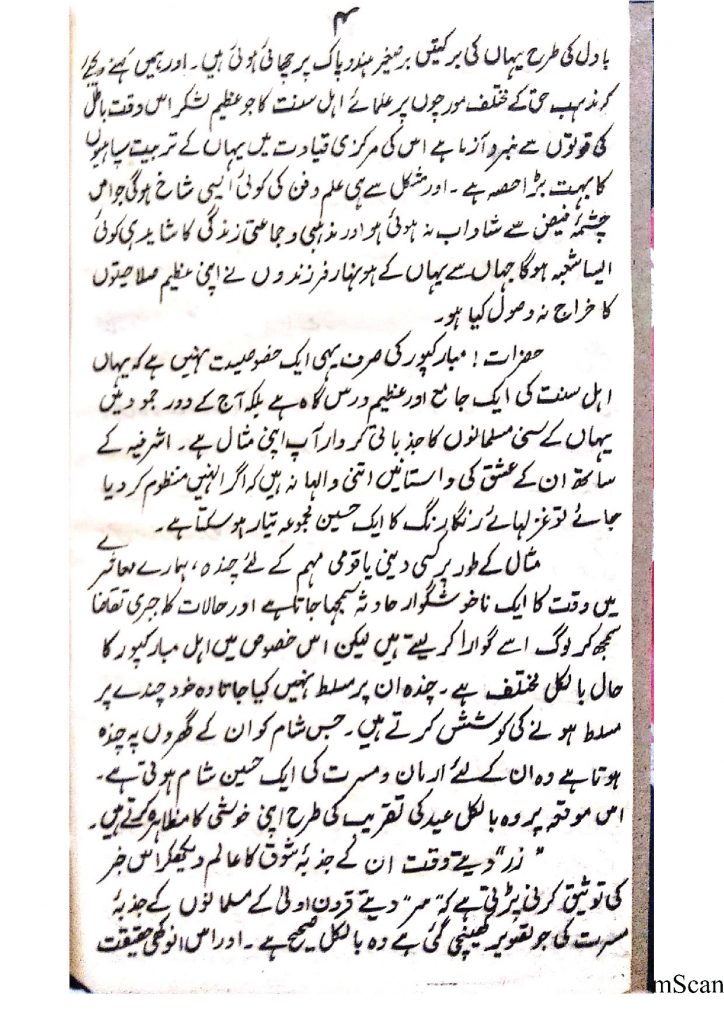 ۴
بادل کی طرح یہاں کی برکتیں برصغیر ہندوپاک پر چھائی ہوئی ہیں۔ اور ہمیں کہنے دیجئے
کہ مذہب حق کے مختلف مورچوں پر علمائے اہل سنت کا جو عظیم لشکر اس وقت باطل
کی قوتوں سے نبرد آزما ہے اس کی مرکزی قیادت میں یہاں کے تربیت سپاہیوں
کا بہت بڑا حصہ ہے۔ اور مشکل سے ہی علم و فن کی کوئی ایسی شاخ ہوگی جو اس
چشمۂ فیض سے شاداب نہ ہوئی ہو اور مذہبی و جماعتی زندگی کا شاید ہی کوئی
ایسا شعبہ ہوگا جہاں سے یہاں کے ہونہار فرزندوں نے اپنی عظیم صلاحیتوں
کا خراج نہ وصول کیا ہو۔
حضرات! مبارکپور کی صرف یہی ایک خصوصیت نہیں ہے کہ یہاں
اہل سنت کی ایک جامع اور عظیم درس گاہ ہے بلکہ آج کے دور جمود میں
یہاں کے سنی مسلمانوں کا جذباتی کردار آپ اپنی مثال ہے۔ اشرفیہ کے
ساتھ ان کے عشق کی داستانیں اتنی والہانہ ہیں کہ اگر انہیں منظوم کر دیا
جائے تو غزلہائے رنگا رنگ کا ایک حسین مجموعہ تیار ہو سکتا ہے۔
مثال کے طور پر کسی دینی یا قومی مہم کے لئے چندہ، ہمارے معاشرے
میں وقت کا ایک ناخوشگوار حادثہ سمجھا جاتا ہے اور حالات کا جبری تقاضا
سمجھ کر لوگ اسے گوارا کر لیتے ہیں لیکن اس خصوص میں اہل مبارکپور کا
حال بالکل مختلف ہے۔ چندہ ان پر مسلط نہیں کیا جاتا وہ خود چندے پر
مسلط ہونے کی کوشش کرتے ہیں۔ جس شام کو ان کے گھروں پہ چندہ
ہوتا ہے وہ ان کے لئے ارمان و مسرت کی ایک حسین شام ہوتی ہے۔
اس موقعہ پر وہ بالکل عید کی تقریب کی طرح اپنی خوشی کا مظاہرہ کرتے ہیں۔
"زر" دیتے وقت ان کے جذبۂ شوق کا عالم دیکھ کر اس خبر
کی توثیق کرنی پڑتی ہے کہ "سر" دیتے قرون اولیٰ کے مسلمانوں کے جذبۂ
مسرت کی جو تصویر کھینچی گئی ہے وہ بالکل صحیح ہے۔ اور اس انوکھی حقیقت
mScan